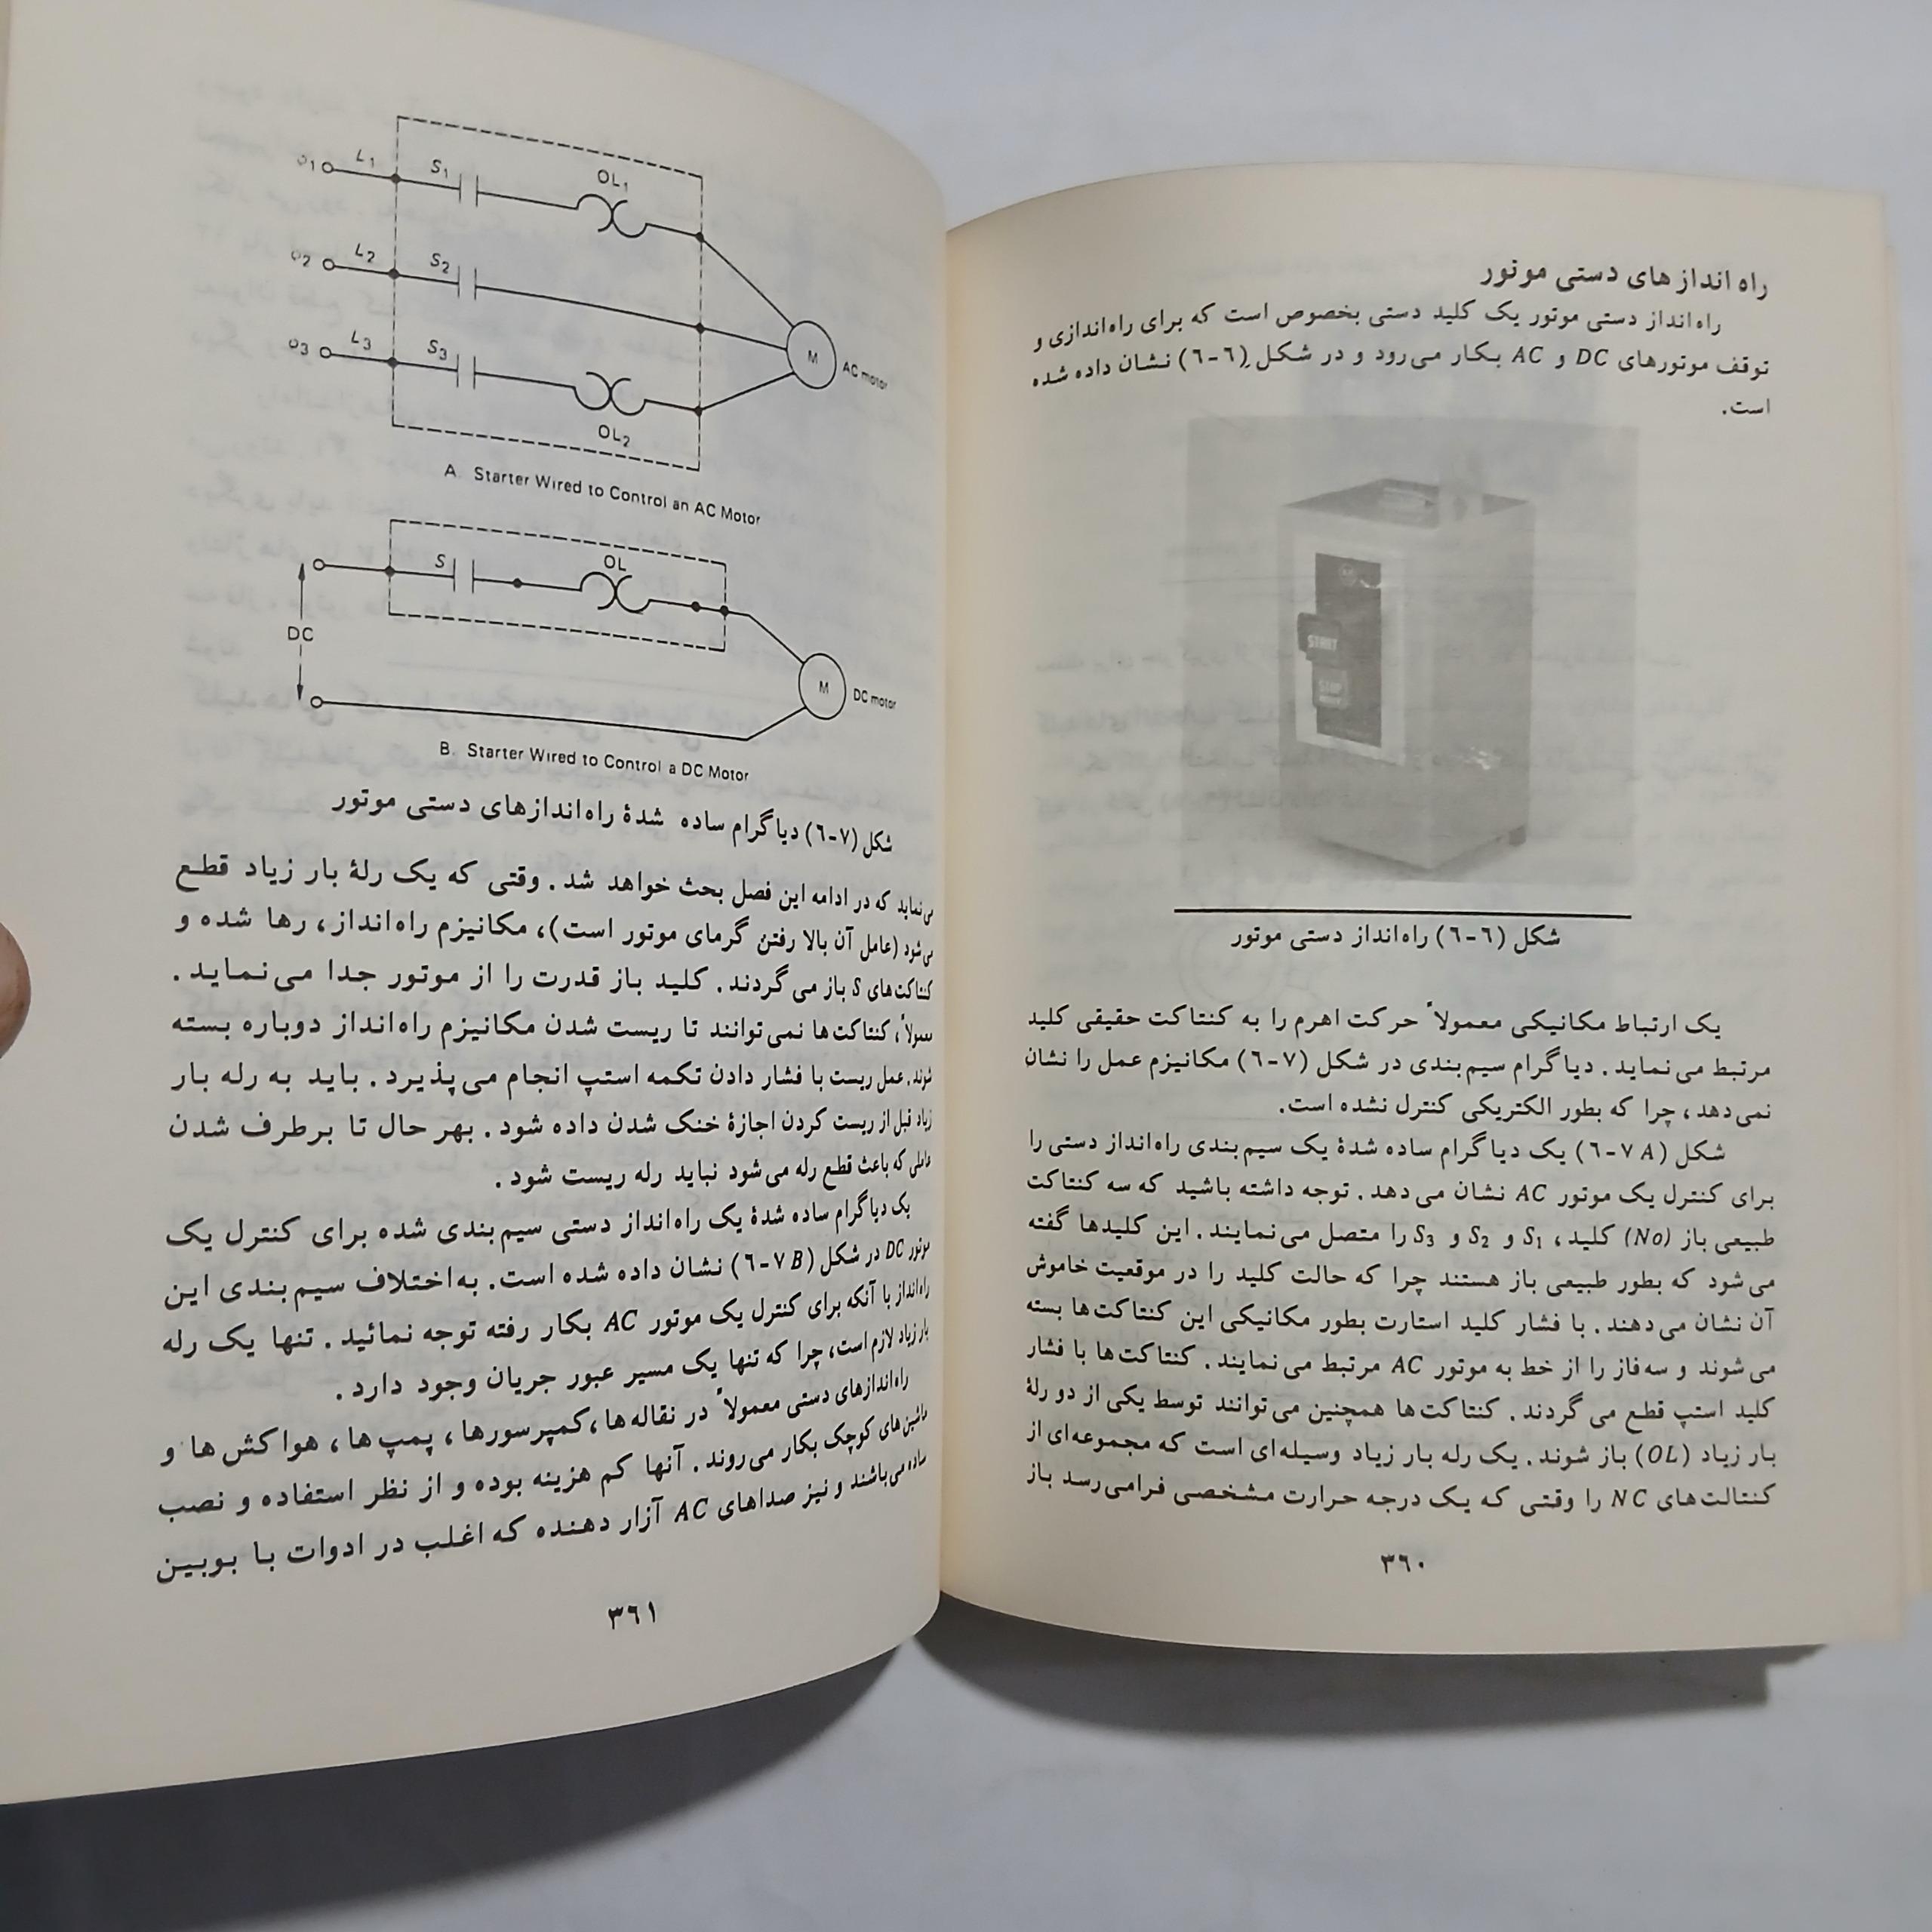 راه اندازهای دستی موتور
راه‌انداز دستی موتور یک کلید دستی بخصوص است که برای راه‌اندازی و
توقف موتورهای DC و AC بکار می‌رود و در شکل (۶-۶) نشان داده شده
است.
START
STOP
شکل (۶-۶) راه‌انداز دستی موتور
یک ارتباط مکانیکی معمولاً حرکت اهرم را به کنتاکت حقیقی کلید
مرتبط می‌نماید. دیاگرام سیم‌بندی در شکل (۷-۶) مکانیزم عمل را نشان
نمی‌دهد، چرا که بطور الکتریکی کنترل نشده است.
شکل (۶-۷ A) یک دیاگرام ساده شدهٔ یک سیم‌بندی راه‌انداز دستی را
برای کنترل یک موتور AC نشان می‌دهد. توجه داشته باشید که سه کنتاکت
طبیعی باز (No) کلید، S1 و S2 و S3 را متصل می‌نمایند. این کلیدها گفته
می‌شود که بطور طبیعی باز هستند چرا که حالت کلید را در موقعیت خاموش
آن نشان می‌دهند. با فشار کلید استارت بطور مکانیکی این کنتاکت‌ها بسته
می‌شوند و سه‌فاز را از خط به موتور AC مرتبط می‌نمایند. کنتاکت‌ها با فشار
کلید استپ قطع می‌گردند. کنتاکت‌ها همچنین می‌توانند توسط یکی از دو رلهٔ
بار زیاد (OL) باز شوند. یک رله بار زیاد وسیله‌ای است که مجموعه‌ای از
کنتالت‌های NC را وقتی که یک درجه حرارت مشخصی فرامی‌رسد باز
۳۶۰
ø1 L1 S1 OL1
ø2 L2 S2
ø3 L3 S3 OL2
M AC motor
A. Starter Wired to Control an AC Motor
S OL
DC
M DC motor
B. Starter Wired to Control a DC Motor
شکل (۷-۶) دیاگرام ساده شدهٔ راه‌اندازهای دستی موتور
می‌نماید که در ادامه این فصل بحث خواهد شد. وقتی که یک رلهٔ بار زیاد قطع
می‌شود (عامل آن بالا رفتن گرمای موتور است)، مکانیزم راه‌انداز، رها شده و
کنتاکت‌های S باز می‌گردند. کلید باز قدرت را از موتور جدا می‌نماید.
معمولاً، کنتاکت‌ها نمی‌توانند تا ریست شدن مکانیزم راه‌انداز دوباره بسته
شوند. عمل ریست با فشار دادن تکمه استپ انجام می‌پذیرد. باید به رله بار
زیاد قبل از ریست کردن اجازهٔ خنک شدن داده شود. بهر حال تا برطرف شدن
عاملی که باعث قطع رله می‌شود نباید رله ریست شود.
یک دیاگرام ساده شدهٔ یک راه‌انداز دستی سیم‌بندی شده برای کنترل یک
موتور DC در شکل (۶-۷ B) نشان داده شده است. به‌اختلاف سیم‌بندی این
راه‌انداز با آنکه برای کنترل یک موتور AC بکار رفته توجه نمائید. تنها یک رله
بار زیاد لازم است، چرا که تنها یک مسیر عبور جریان وجود دارد.
راه‌اندازهای دستی معمولاً در نقاله‌ها، کمپرسورها، پمپ‌ها، هواکش‌ها و
ماشین‌های کوچک بکار می‌روند. آنها کم هزینه بوده و از نظر استفاده و نصب
ساده می‌باشند و نیز صداهای AC آزار دهنده که اغلب در ادوات با بوبین
۳۶۱